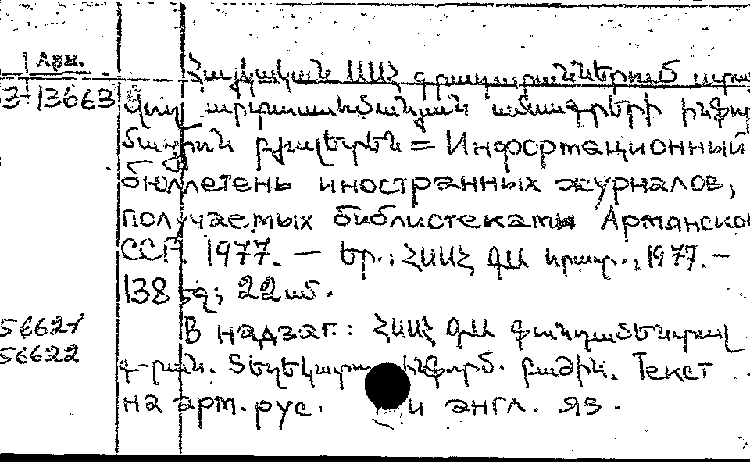 Арм.
Հայկական ՍՍՀ գրադարաններում
3-13663
արտասահմանյան ամսագրերի
բյուլետեն = Информационный
бюллетень иностранных журналов,
получаемых библиотеками Армянско
ССР. 1977. – Եր.: ՀՍՍՀ ԳԱ հրատ., 1977. –
138 էջ; 22 սմ.
56621 В надзаг.: ՀՍՍՀ ԳԱ ֆունդամենտալ
56622 գ-րան. Տեղեկատ. ինֆորմ. բաժին. Текст
на арм. рус. и англ. яз.